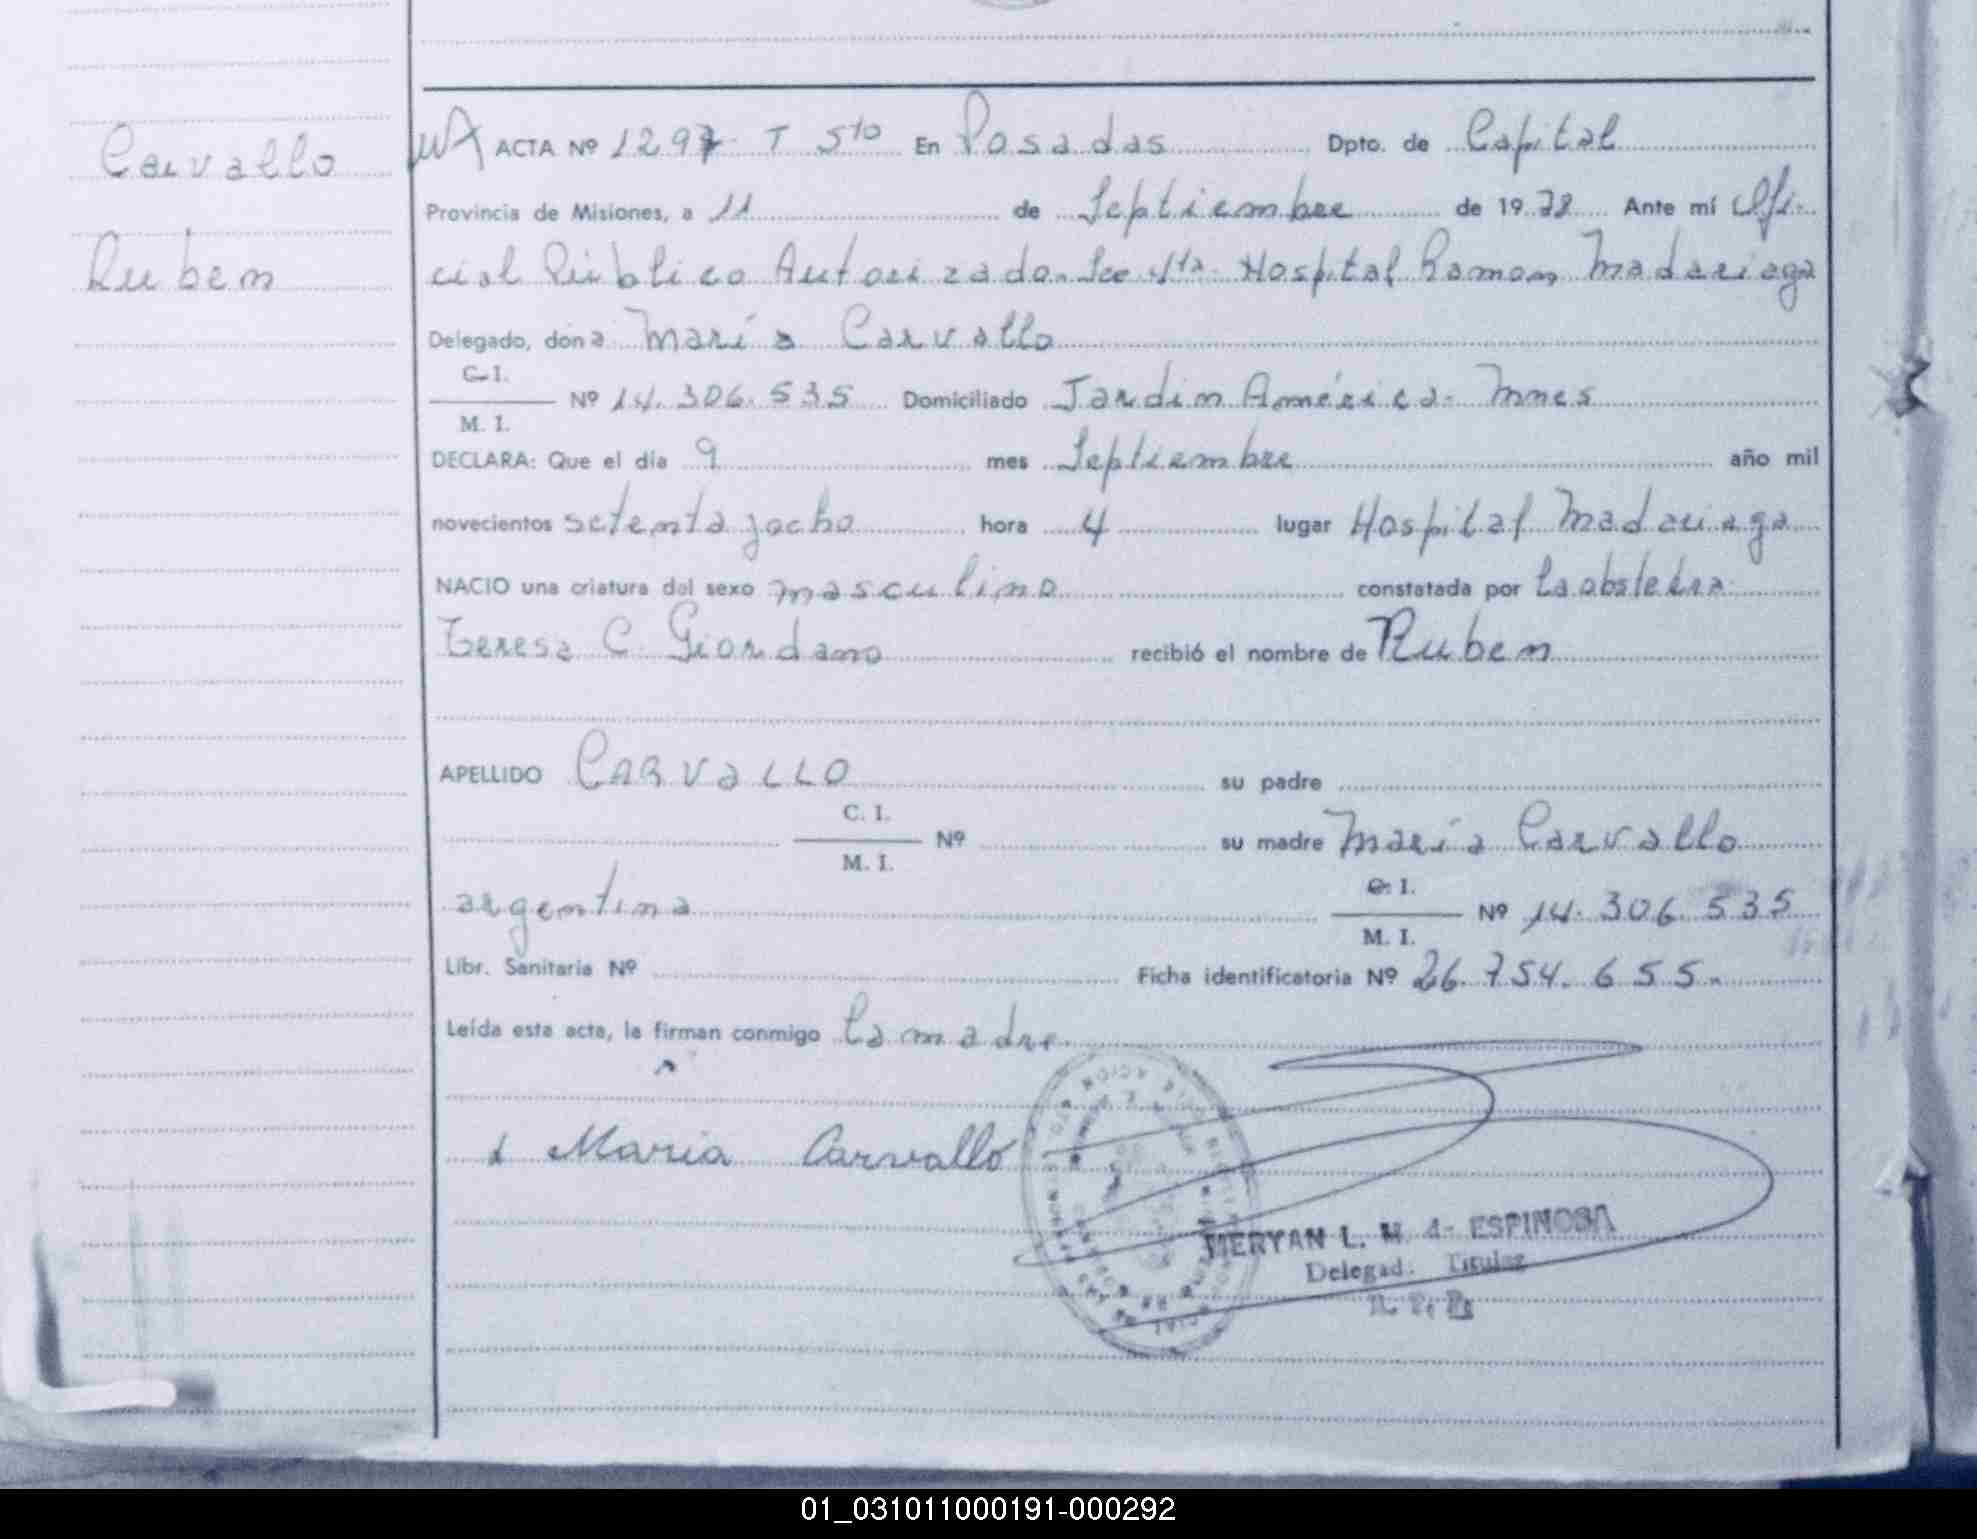 Carvallo
Ruben
ACTA Nº 1297 T 5to En Posadas Dpto. de Capital
Provincia de Misiones, a 11 de Septiembre de 1978 Ante mí Ofi-
cial Público Autorizado. Hospital Ramon Madariaga
Delegado, don a María Carvallo
C. I.
M. I. Nº 14.306.535 Domiciliado Jardin América - Mnes
DECLARA: Que el día 9 mes Septiembre año mil
novecientos setenta y ocho hora 4 lugar Hospital Madariaga
NACIO una criatura del sexo masculino constatada por la obstetra
Teresa C. Giordano recibió el nombre de Ruben
APELLIDO CARVALLO su padre
C. I.
M. I. Nº su madre María Carvallo
argentina C. I.
M. I. Nº 14.306.535
Libr. Sanitaria Nº Ficha identificatoria Nº 26.754.655.
Leída esta acta, la firman conmigo la madre
Maria Carvallo
MERYAN L. M. d- ESPINOSA
Delegad. Titular
01_031011000191-000292